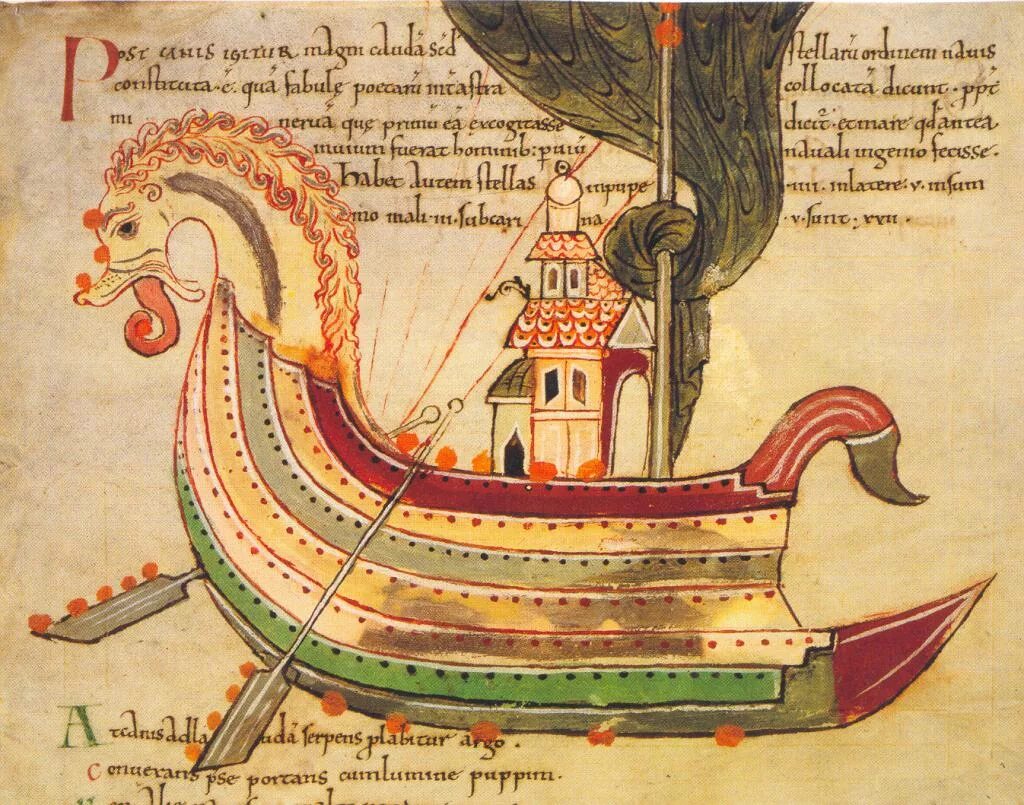 Post canis igitur magni caudā sed stellarū ordinem nauis
constituta·ē· quā fabulę poetarū int̄ astra collocatā dicunt · ꝓpt̄
mi neruā quę primū eā excogitasse dicit̄ · et mare qđ antea
inuium fuerat hominib: ꝑuiū nauali ingenio fecisse·
habet autem stellas in pupe ·iiii· in latere ·v· in sum
mo mali ·iii· sub cari na · v· sunt · xxii ·
At canis ad udā serpens ꝓlabitur argo ·
portans cum lumine puppim ·